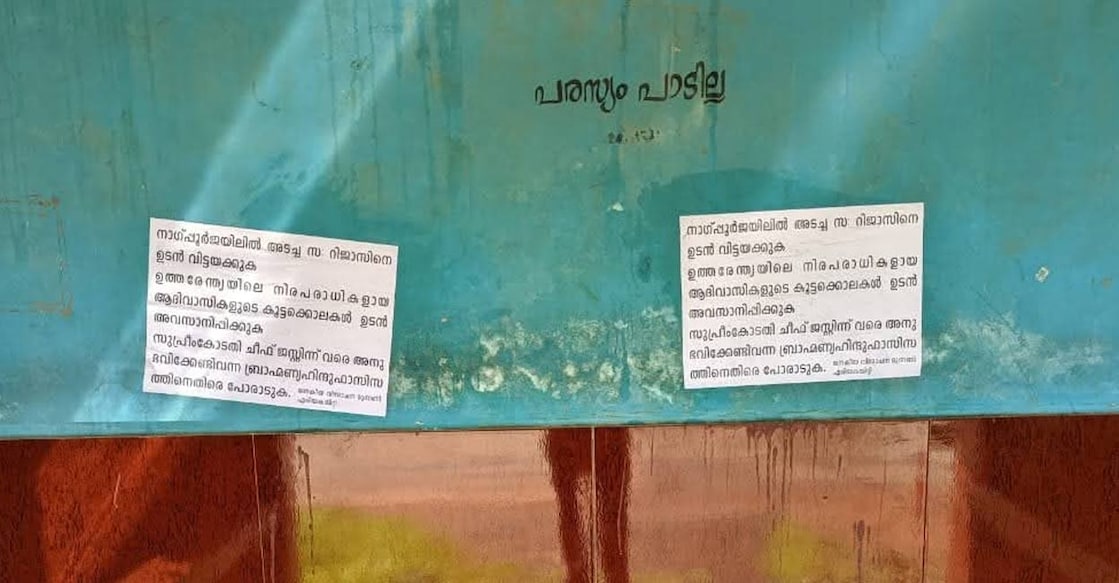 പരസ്യം പാടില്ല
നാഗ്പ്പൂർജയിലിൽ അടച്ച സ: റിജാസിനെ
ഉടൻ വിട്ടയക്കുക
ഉത്തരേന്ത്യയിലെ നിരപരാധികളായ
ആദിവാസികളുടെ കൂട്ടക്കൊലകൾ ഉടൻ
അവസാനിപ്പിക്കുക
സുപ്രീംകോടതി ചീഫ് ജസ്റ്റിന്ന് വരെ അനു
ഭവിക്കേണ്ടിവന്ന ബ്രാഹ്മണ്യഹിന്ദുഫാസിസ
ത്തിനെതിരെ പോരാടുക.
നാഗ്പ്പൂർജയിലിൽ അടച്ച സ: റിജാസിനെ
ഉടൻ വിട്ടയക്കുക
ഉത്തരേന്ത്യയിലെ നിരപരാധികളായ
ആദിവാസികളുടെ കൂട്ടക്കൊലകൾ ഉടൻ
അവസാനിപ്പിക്കുക
സുപ്രീംകോടതി ചീഫ് ജസ്റ്റിന്ന് വരെ അനു
ഭവിക്കേണ്ടിവന്ന ബ്രാഹ്മണ്യഹിന്ദുഫാസിസ
ത്തിനെതിരെ പോരാടുക.